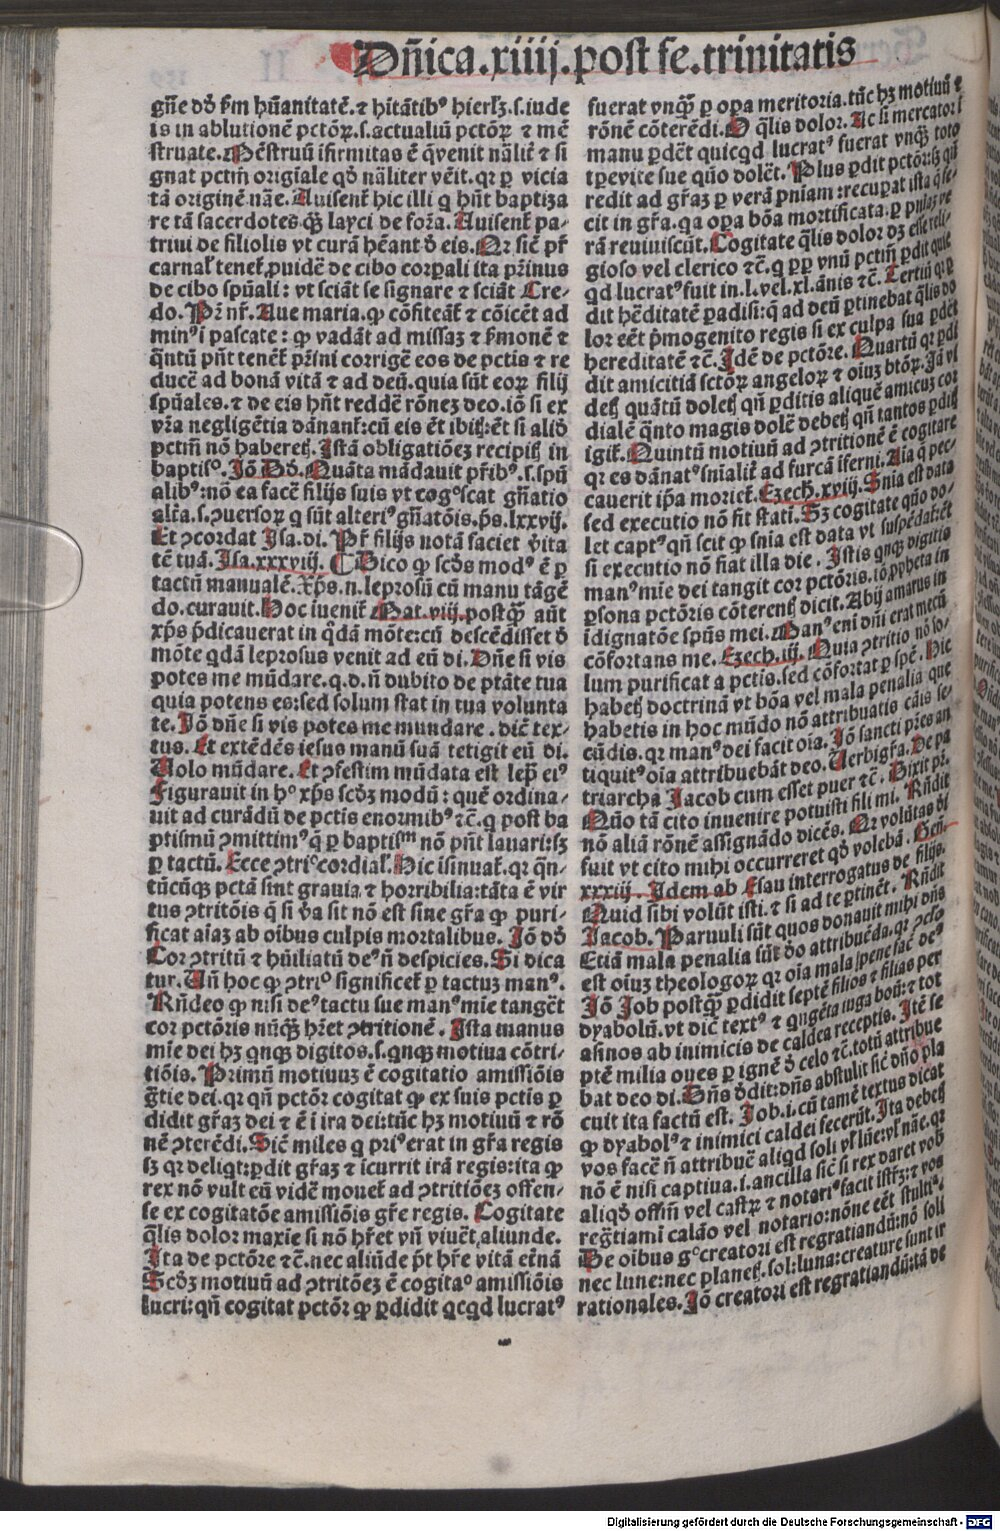 Dñica.xiiij.post fe.trinitatis
gñe dð fm hũanitatẽ.⁊ hitãtibꝰ hierlꝫ.s.iude
is in ablutionẽ pctõꝝ.s.actualiũ pctõꝝ ⁊ mẽ
struate.Mẽstruũ ifirmitas ẽ q̃ venit nãlit̃ ⁊ si
gnat pctm̃ origiãle qð nãliter vẽit.qꝛ ꝑ vicia
tã originẽ nãe.Auisent̃ hic illi q hñt baptiza
re tã sacerdotes,qꝫ layci de foꝛa.Auisent̃ pa⸗
trini de filiolis vt curã hẽant ð eis.Nã sic̃ pr̃
carnal̃ tenet̃,puidẽ de cibo coꝛꝑali ita pr̃inus
de cibo spũali: vt sciãt se signare ⁊ sciãt Cre⸗
do.Pr̃ nr̃.Aue maria.ꝙ cõfiteãt̃ ⁊ cõicẽt ad
minꝰ i pascate: ꝙ vadãt ad missaꝫ ⁊ ẜmonẽ ⁊
q̃ntũ pñt tenet̃ pr̃ini coꝛrigẽ eos de pctis ⁊ re
ducẽ ad bonã vitã ⁊ ad deũ.quia sũt eoꝝ filij
spũales.⁊ de eis hñt reddẽ rõneꝫ deo.iõ si ex
vr̃a negligẽtia dãnant̃:cũ eis ẽt ibit̃:ẽt si aliõ
pctm̃ nõ haberet̃.Istã obligatiõeꝫ recipit̃ in
baptisᵒ.Iõ Dð.Quãta mãdauit pr̃ibꝰ.s.spũ
alibꝰ:nõ ea facẽ filijs suis vt cogᵒscat gñatio
alt̃a.s.ꝯuersoꝝ q sũt alteriꝰ gñatõis.ps.lxxvij.
Et ꝯcordat Isa.di. Pr̃ filijs notã faciet ṽita
tẽ tuã.Isa.xxxviij. ¶Dico ꝙ scðs modꝰ ẽ ꝑ
tactũ manualẽ.Xp̃s.n.leprosũ cũ manu tãgẽ
do.curauit.Hoc iuenit̃ Mat.viij.postqꝫ aũt
xp̃s p̃dicauerat in q̃dã mõte:cũ descẽdisset ð
mõte qdã leprosus venit ad eũ di.Dñe si vis
potes me mũdare.q.d.ñ dubito de ptãte tua
quia potens es:sed solum stat in tua volunta
te.Iõ dñe si vis potes me mundare . dic̃ tex⸗
tus. Et extẽdẽs iesus manũ suã tetigit eũ di.
Uolo mũdare.Et ꝯfestim mũdata est lepꝛ̃ eiꝰ
Figurauit in hᵒ xp̃s scðꝫ modũ: quẽ oꝛdina⸗
uit ad curãdũ de pctis enoꝛmibꝰ ⁊c̃.q post ba
ptismũ ꝯmittimꝰ q̃ ꝑ baptism̃ nõ pñt lauari:sꝫ
ꝑ tactũ. Ecce ꝯtriᵒ coꝛdial̃.Hic isinuat̃.qꝛ q̃n⸗
tũcũqꝫ pctã sint grauia ⁊ hoꝛribilia:tãta ẽ vir
tus ꝯtritõis q̃ si ṽa sit nõ est sine gr̃a ꝙ puri⸗
ficat aiaꝫ ab oibus culpis moꝛtalibus. Iõ dð
Coꝛ ꝯtritũ ⁊ hũiliatũ deꝰ ñ despicies.Si dica
tur.Uñ hoc ꝙ ꝯtriᵒ significet̃ ꝑ tactuꝫ manꝰ.
Rñdeo ꝙ nisi deꝰ tactu sue manꝰ mie tangẽt
coꝛ pctõris nũqꝫ hr̃et ꝯtritionẽ. Ista manus
mie dei hꝫ qnqꝫ digitos.s.qnqꝫ motiua cõtri⸗
tiõis.Primũ motiuuꝫ ẽ cogitatio amissiõis
gr̃tie dei.qꝛ qñ pctõꝛ cogitat ꝙ ex suis pctis ꝑ
didit gr̃aꝫ dei ⁊ ẽ i ira dei:tũc hꝫ motiuũ ⁊ rõ
nẽ ꝯterẽdi.Sic̃ miles q priꝰ erat in gr̃a regis
sꝫ qꝛ deliqt:ꝑdit gr̃aꝫ ⁊ icurrit irã regis:ita ꝙ
rex nõ vult eũ vidẽ mouet̃ ad ꝯtritiõeꝫ offen⸗
se ex cogitatõe amissiõis gr̃e regis. Cogitate
q̃lis doloꝛ maxie si nõ hr̃et vñ viuẽt aliunde.
Ita de pctõre ⁊c̃.nec aliũde p̃t hr̃e vitã etñã
Scðꝫ motiuũ ad ꝯtritõeꝫ ẽ cogitaᵒ amissiõis
lucri:qñ cogitat pctõꝛ ꝙ ꝑdidit qcqd lucratꝰ
fuerat vnqꝫ ꝑ oꝑa meritoꝛia.tũc hꝫ motiuũ ⁊
rõnẽ cõterẽdi.O q̃lis doloꝛ.Ac si mercatoꝛ i
manu ꝑdẽt quicqd lucratꝰ fuerat vnqꝫ toto
tꝑe vite sue quõ dolẽt.Plus ꝑdit pctõꝛ:sꝫ qñ
redit ad gr̃aꝫ ꝑ verã pñiam:recuꝑat ista q̃ fe⸗
cit in gr̃a.qa oꝑa bõa moꝛtificata.ꝑ pñiaꝫ ve
rã reuiuiscũt.Cogitate q̃lis doloꝛ dꝫ esse reli⸗
gioso vel clerico ⁊c̃.q ꝑꝑ vnũ pctm̃ ꝑdit quic
qd lucratꝰ fuit in.l.vel.xl.ãnis ⁊c̃.Tertiũ qꝛ ꝑ
dit hẽditatẽ ꝑadisi:q̃ ad deũ ꝑtinebat q̃lis do
loꝛ eẽt p̃mogenito regis si ex culpa sua ꝑdẽt
hereditatẽ ⁊c̃.Idẽ de pctõre.Quartũ qꝛ ꝑdi
dit amicitiã sctõꝝ angeloꝝ ⁊ oiuꝫ btõꝝ.Iã vi
det̃ quãtũ dolet̃ qñ ꝑditis aliquẽ amicuꝫ coꝛ
dialẽ q̃nto magis dolẽ debet̃ qñ tantos ꝑdit̃
igit̃.Quintũ motiuũ ad ꝯtritionẽ ẽ cogitare
qꝛ es dãnatꝰ sñialit̃ ad furcã iferni.Aia q pec⸗
cauerit ip̃a moꝛiet̃.Ezech.xviij.Sñia est data
sed executio nõ fit stati.Sꝫ cogitate quõ do⸗
let captꝰ qñ scit ꝙ sñia est data vt suspẽdat̃:ẽt
si executio nõ fiat illa die. Istis qnqꝫ digitis
manꝰ mie dei tangit coꝛ pctõris.iõ ꝓpheta in
ꝑsona pctõris cõterent̃ dicit.Abij amarus in
idignatõe spũs mei.Manꝰ eni dñi erat mecũ
cõfoꝛtans me.Ezech.iij. Quia ꝯtritio nõ so⸗
lum purificat a pctis.sed cõfoꝛtat ꝑ spẽ. Hic
habet̃ doctrinã vt bõa vel mala penalia que
habetis in hoc mũdo nõ attribuatis cãis se⸗
cũdis.qꝛ manꝰ dei facit oia. Iõ sancti pr̃es an
tiquitꝰ oia attribuebãt deo.Uerbigr̃a.De pa
triarcha Iacob cum esset puer ⁊c̃. Dixit pr̃.
Quõ tã cito inuenire potuisti fili mi. Rñdit
nõ aliã rõnẽ assignãdo dicẽs. Qꝛ volũtas dei
fuit vt cito mihi occurreret qð volebã. Geñ.
xxxiij. Idem ab Esau interrogatus de filijs.
Quid sibi volũt isti.⁊ si ad te ꝑtinẽt. Rñdit
Iacob. Paruuli sũt quos donauit mihi dñs
Etiã mala penalia sũt ðo attribuẽda.qꝛ ꝯclo
est oiuꝫ theologoꝝ qꝛ oia mala pene facẽ deꝰ
Iõ Iob postqꝫ ꝑdidit septẽ filios ⁊ filias per
dyabolũ.vt dic̃ textꝰ ⁊ qngẽta iuga boũ:⁊ tot
asinos ab inimicis de caldea receptis. Itẽ se
ptẽ milia oues ꝑ ignẽ ð celo ⁊c̃.totũ attribue
bat deo di.Dñs ðdit:dñs abstulit sic̃ dño pla
cuit ita factũ est. Iob.i.cũ tamẽ textus dicat
ꝙ dyabolꝰ ⁊ inimici caldei fecerũt.Ita debet̃
vos facẽ ñ attribuẽ aliqd soli vl̃ lũe:vl̃ nãe.qꝛ
nõ ẽ nisi captiua.i.ancilla sic̃ si rex daret vob
aliqð offim̃ vel castꝝ ⁊ notariꝰ facit istꝫ:⁊ vos
regr̃tiami calão vel notario:nõne eẽt stultiᵃ:
De oibus gᵒ creatoꝛi est regratiandũ:nõ soli
nec lune:nec planet̃.sol:luna:creature sunt ir
rationales.Iõ creatoꝛi est regratiandũ:tã de
Digitalisierung gefördert durch die Deutsche Forschungsgemeinschaft - DFG